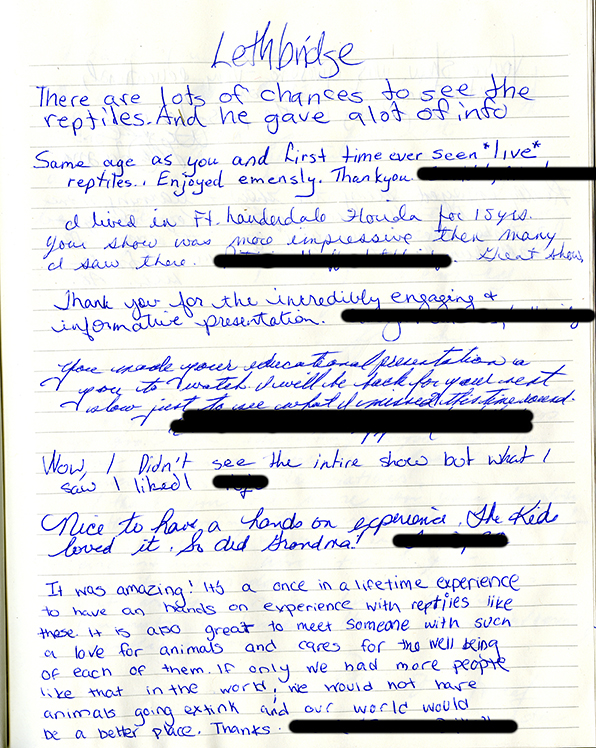 Lethbridge
There are lots of chances to see the
reptiles. And he gave alot of info
Same age as you and first time ever seen *live*
reptiles.. Enjoyed emensly. Thankyou
I lived in Ft. Lauderdale Florida for 15 yrs.
Your show was more impressive then many
I saw there. Great show,
Thank you for the incredibly engaging &
informative presentation.
You made your educational presentation a
joy to watch. I will be back for your next
show just to see what I missed this time round.
Wow, I Didn't see the intire show but what I
saw I liked!
Nice to have a hands on experience. The Kids
loved it. So did Grandma!
It was amazing! It's a once in a lifetime experience
to have an hands on experience with reptiles like
these. It is also great to meet someone with such
a love for animals and cares for the well being
of each of them. If only we had more people
like that in the world, we would not have
animals going extink and our world would
be a better place. Thanks.